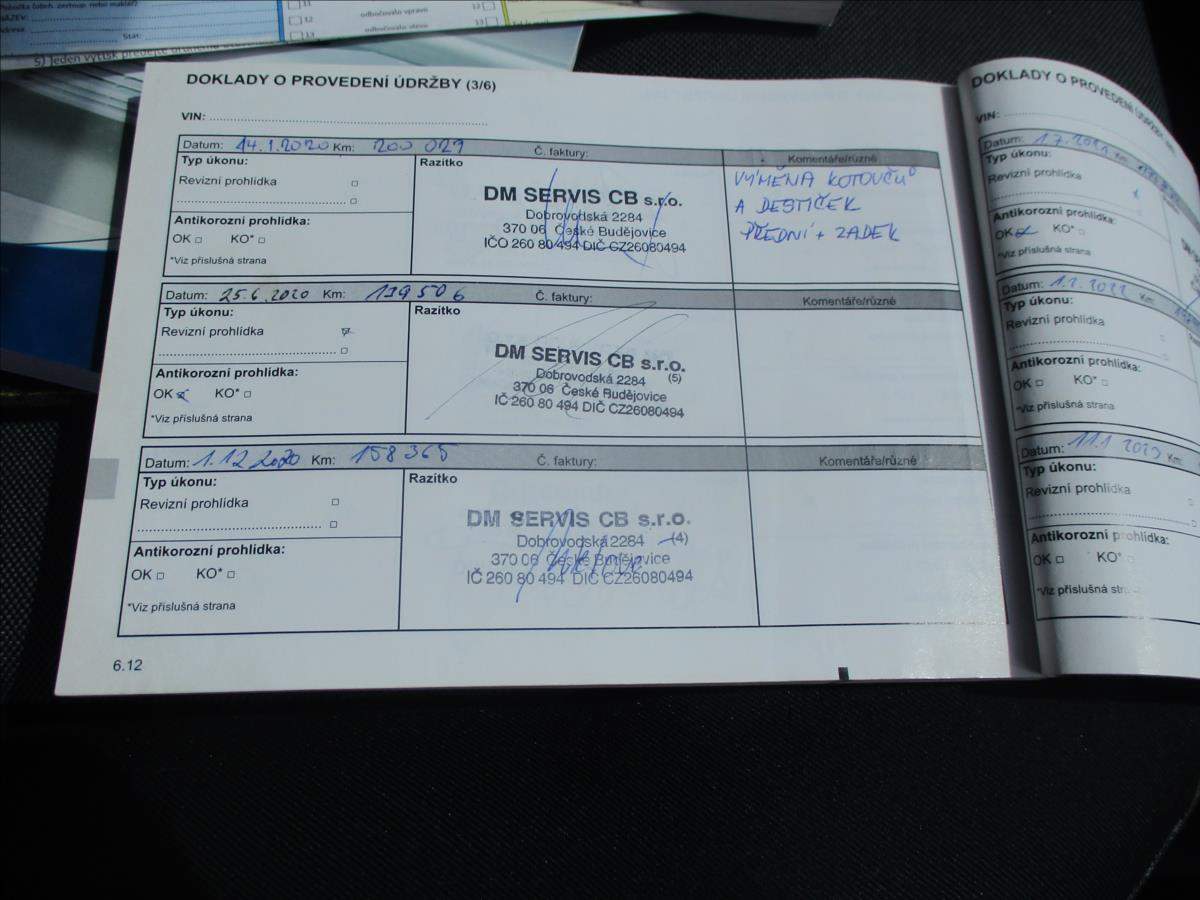 NÁZEV:
Stát:
11
12
13
odbočovalo vpravo
odbočovalo vlevo
12
13
5) Jeden výtisk předejte druhému
DOKLADY O PROVEDENÍ ÚDRŽBY (3/6)
VIN:
Datum: 14.1.2020 Km: 200 029 Č. faktury: Komentáře/různé
Typ úkonu:
Revizní prohlídka
Antikorozní prohlídka:
OK KO*
*Viz příslušná strana
Razítko
DM SERVIS CB s.r.o.
Dobrovodská 2284
370 06 České Budějovice
IČO 260 80 494 DIČ CZ26080494
VÝMĚNA KOTOUČŮ
A DESTIČEK
PŘEDNÍ + ZADEK
Datum: 25.6.2020 Km: 119506 Č. faktury: Komentáře/různé
Typ úkonu:
Revizní prohlídka
Antikorozní prohlídka:
OK KO*
*Viz příslušná strana
Razítko
DM SERVIS CB s.r.o.
Dobrovodská 2284 (5)
370 06 České Budějovice
IČ 260 80 494 DIČ CZ26080494
Datum: 1.12.2020 Km: 158365 Č. faktury: Komentáře/různé
Typ úkonu:
Revizní prohlídka
Antikorozní prohlídka:
OK KO*
*Viz příslušná strana
Razítko
DM SERVIS CB s.r.o.
Dobrovodská 2284 (4)
370 06 České Budějovice
IČ 260 80 494 DIČ CZ26080494
6.12
DOKLADY O PROVEDENÍ
VIN:
Datum: Km:
Typ úkonu:
Revizní prohlídka
Antikorozní prohlídka:
OK KO*
*Viz příslušná strana
Datum: 1.2.2022 Km:
Typ úkonu:
Revizní prohlídka
Antikorozní prohlídka:
OK KO*
*Viz příslušná strana
Datum: 11.1 2023 Km:
Typ úkonu:
Revizní prohlídka
Antikorozní prohlídka:
OK KO*
*Viz příslušná